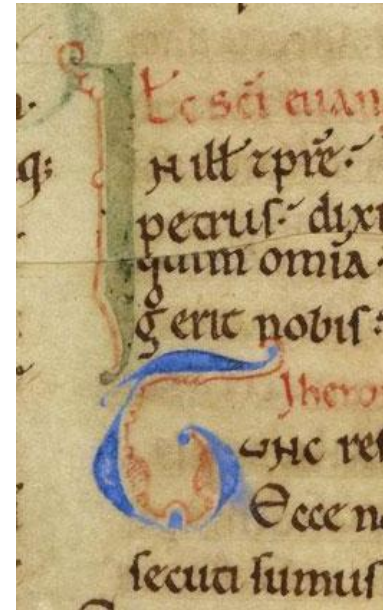 Lc̄ sc̄i euan
IN ill̄ tp̄re:
petrus: dixi
quim omīa
g erit nobis:
Ihero
Tunc res
Ecce n
secuti sumus